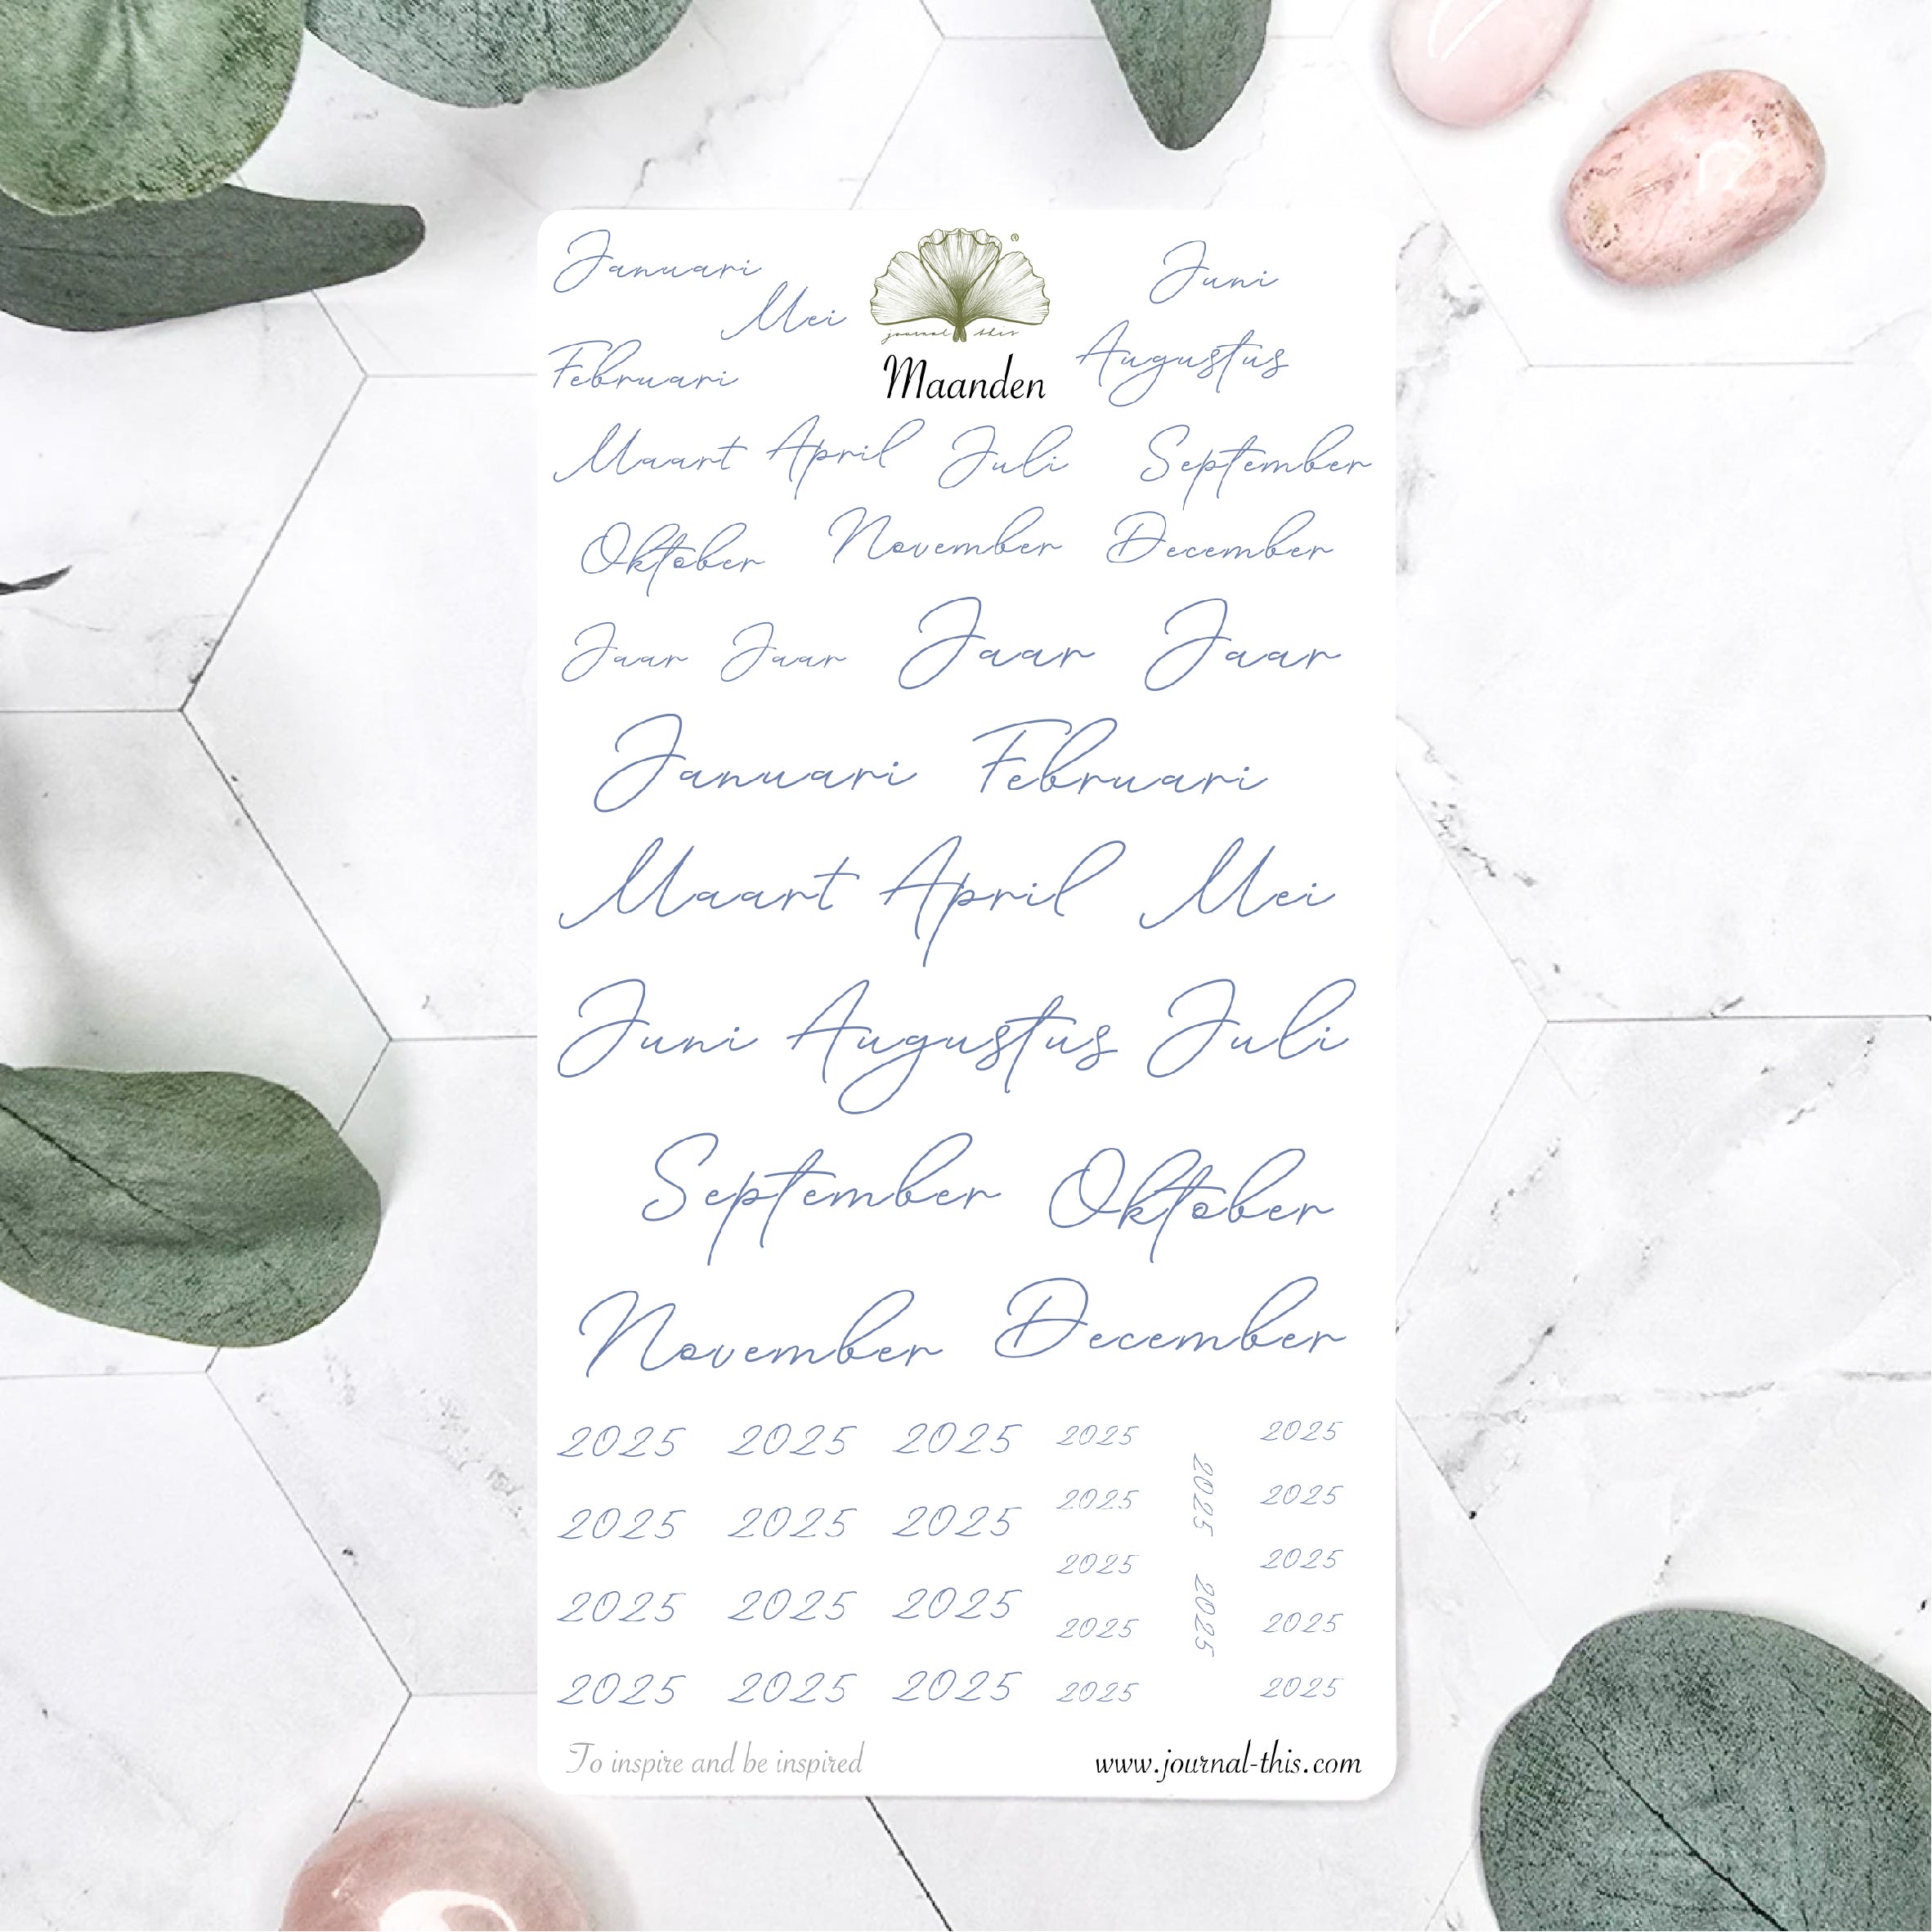 Januari
Mei
journal this
®
Juni
Februari
Maanden
Augustus
Maart April Juli September
Oktober November December
Jaar Jaar Jaar Jaar
Januari Februari
Maart April Mei
Juni Augustus Juli
September Oktober
November December
2025 2025 2025 2025 2025
2025 2025 2025 2025 2025 2025
2025 2025 2025 2025 2025
2025 2025 2025 2025
2025 2025 2025 2025
To inspire and be inspired www.journal-this.com